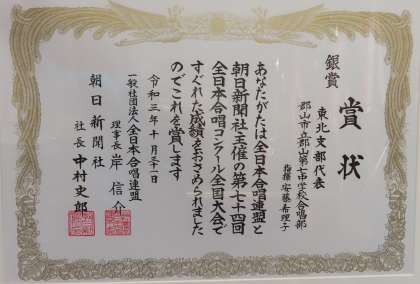 賞状
銀賞
東北支部代表
郡山市立郡山第七中学校合唱部
指揮 安藤希理子
あなたがたは全日本合唱連盟と
朝日新聞社主催の第七十四回
全日本合唱コンクール全国大会で
すぐれた成績をおさめられました
のでこれを賞します
令和三年十月三十一日
一般社団法人全日本合唱連盟
理事長 岸信介
朝日新聞社
社長 中村史郎